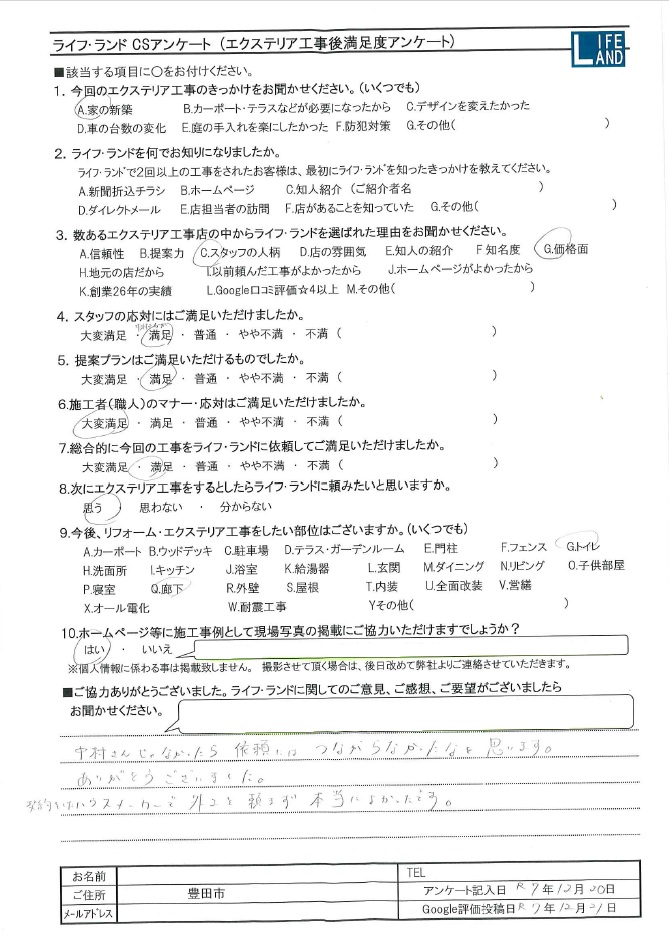 ライフ・ランド CSアンケート（エクステリア工事後満足度アンケート）
LIFE LAND
■該当する項目に〇をお付けください。
1．今回のエクステリア工事のきっかけをお聞かせください。（いくつでも）
A.家の新築 B.カーポート・テラスなどが必要になったから C.デザインを変えたかった
D.車の台数の変化 E.庭の手入れを楽にしたかった F.防犯対策 G.その他( )
2．ライフ・ランドを何でお知りになりましたか。
ライフ・ランドで2回以上の工事をされたお客様は、最初にライフ・ランドを知ったきっかけを教えてください。
A.新聞折込チラシ B.ホームページ C.知人紹介（ご紹介者名 ）
D.ダイレクトメール E.店担当者の訪問 F.店があることを知っていた G.その他( )
3．数あるエクステリア工事店の中からライフ・ランドを選ばれた理由をお聞かせください。
A.信頼性 B.提案力 C.スタッフの人柄 D.店の雰囲気 E.知人の紹介 F 知名度 G.価格面
H.地元の店だから I.以前頼んだ工事がよかったから J.ホームページがよかったから
K.創業26年の実績 L.Google口コミ評価☆4以上 M.その他( )
4．スタッフの応対にはご満足いただけましたか。
大変満足 ・ 満足 ・ 普通 ・ やや不満 ・ 不満 ( )
5．提案プランはご満足いただけるものでしたか。
大変満足 ・ 満足 ・ 普通 ・ やや不満 ・ 不満 ( )
6.施工者（職人）のマナー・応対はご満足いただけましたか。
大変満足 ・ 満足 ・ 普通 ・ やや不満 ・ 不満 ( )
7.総合的に今回の工事をライフ・ランドに依頼してご満足いただけましたか。
大変満足 ・ 満足 ・ 普通 ・ やや不満 ・ 不満 ( )
8.次にエクステリア工事をするとしたらライフ・ランドに頼みたいと思いますか。
思う ・ 思わない ・ 分からない
9.今後、リフォーム・エクステリア工事をしたい部位はございますか。（いくつでも）
A.カーポート B.ウッドデッキ C.駐車場 D.テラス・ガーデンルーム E.門柱 F.フェンス G.トイレ
H.洗面所 I.キッチン J.浴室 K.給湯器 L.玄関 M.ダイニング N.リビング O.子供部屋
P.寝室 Q.廊下 R.外壁 S.屋根 T.内装 U.全面改装 V.営繕
X.オール電化 W.耐震工事 Yその他( )
10.ホームページ等に施工事例として現場写真の掲載にご協力いただけますでしょうか？
はい ・ いいえ
※個人情報に係わる事は掲載致しません。 撮影させて頂く場合は、後日改めて弊社よりご連絡させていただきます。
■ご協力ありがとうございました。ライフ・ランドに関してのご意見、ご感想、ご要望がございましたら
お聞かせください。
中村さんじゃなかったら 依頼には つながらなかったなと 思います。
ありがとうございました。
契約したハウスメーカーで 外工を 頼まず 本当によかったです。
お名前 TEL
ご住所 豊田市 アンケート記入日 R7年12月20日
メールアドレス Google評価投稿日 R7年12月21日